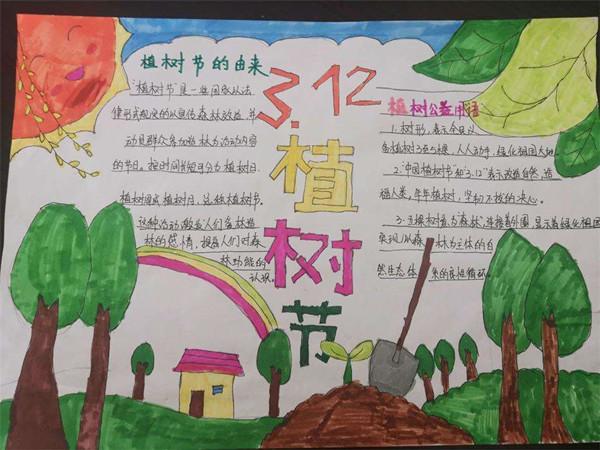 植树节的由来
"植树节"是一些国家以法
律形式规定的以宣传森林效益,并
动员群众参加造林为活动内容
的节日。按时间长短可分为植树日、
植树周或植树月,总称植树节。
这种活动,激发人们爱林造
林的感情,提高人们对森
林功能的
认识。
3.12
植
树
节
植树公益用语
1.树形,表示全民义
务植树3至5棵,人人动手,绿化祖国大地。
2."中国植树节"和"3.12"表示改造自然,造
福人类,年年植树,坚韧不拔的决心。
3.五棵树意为"森林",连接着外圈,显示着绿化祖国
实现以森林为主体的自
然生态体系的良性循环。